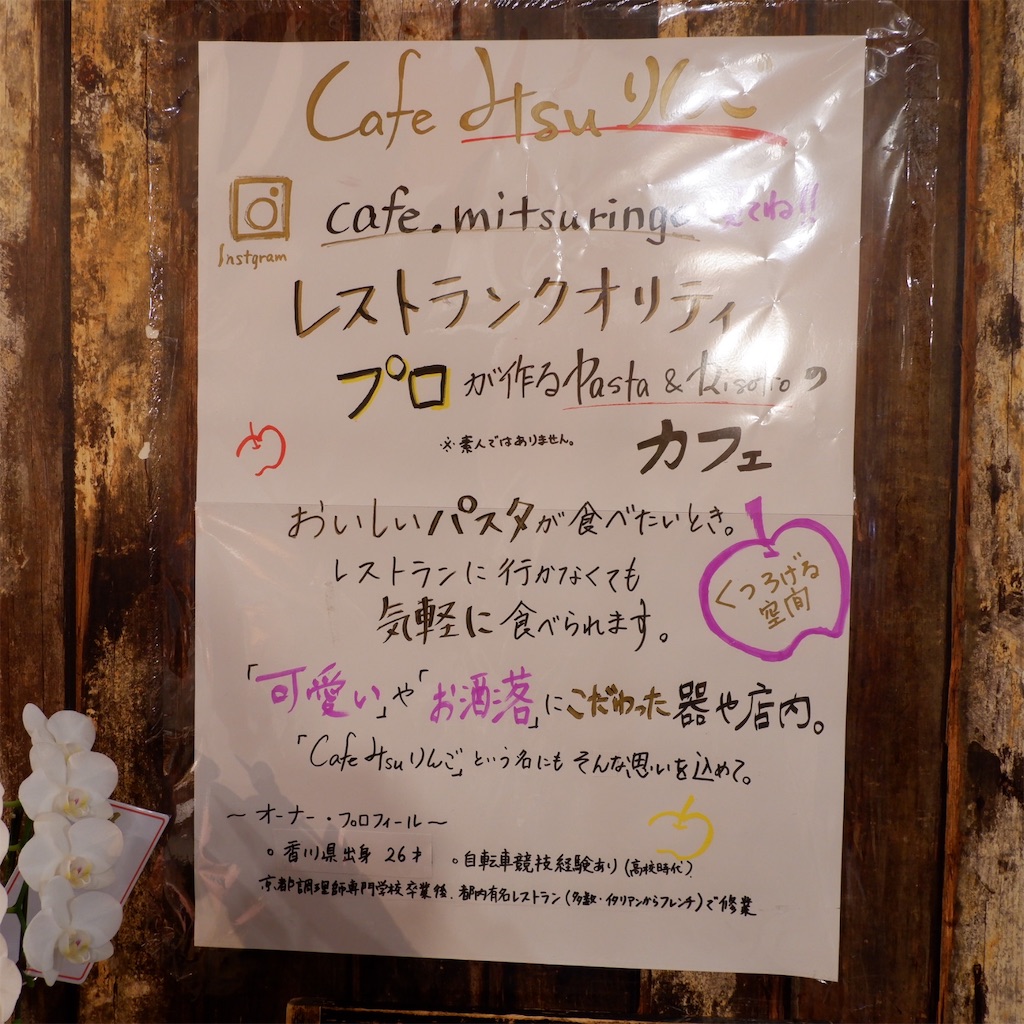 Cafe みsuりんご
cafe.mitsuringo みてね!!
Instgram
レストランクオリティ
プロが作るPasta & Risottoの
※素人ではありません。
カフェ
おいしいパスタが食べたいとき。
レストランに行かなくても
気軽に食べられます。
くつろげる
空間
「可愛い」や「お洒落」にこだわった器や店内。
「Cafe みsuりんご」という名にもそんな思いを込めて。
～オーナー・プロフィール～
。香川県出身 26才 。自転車競技経験あり(高校時代)
京都調理師専門学校卒業後、都内有名レストラン(多数・イタリアンからフレンチ)で修業